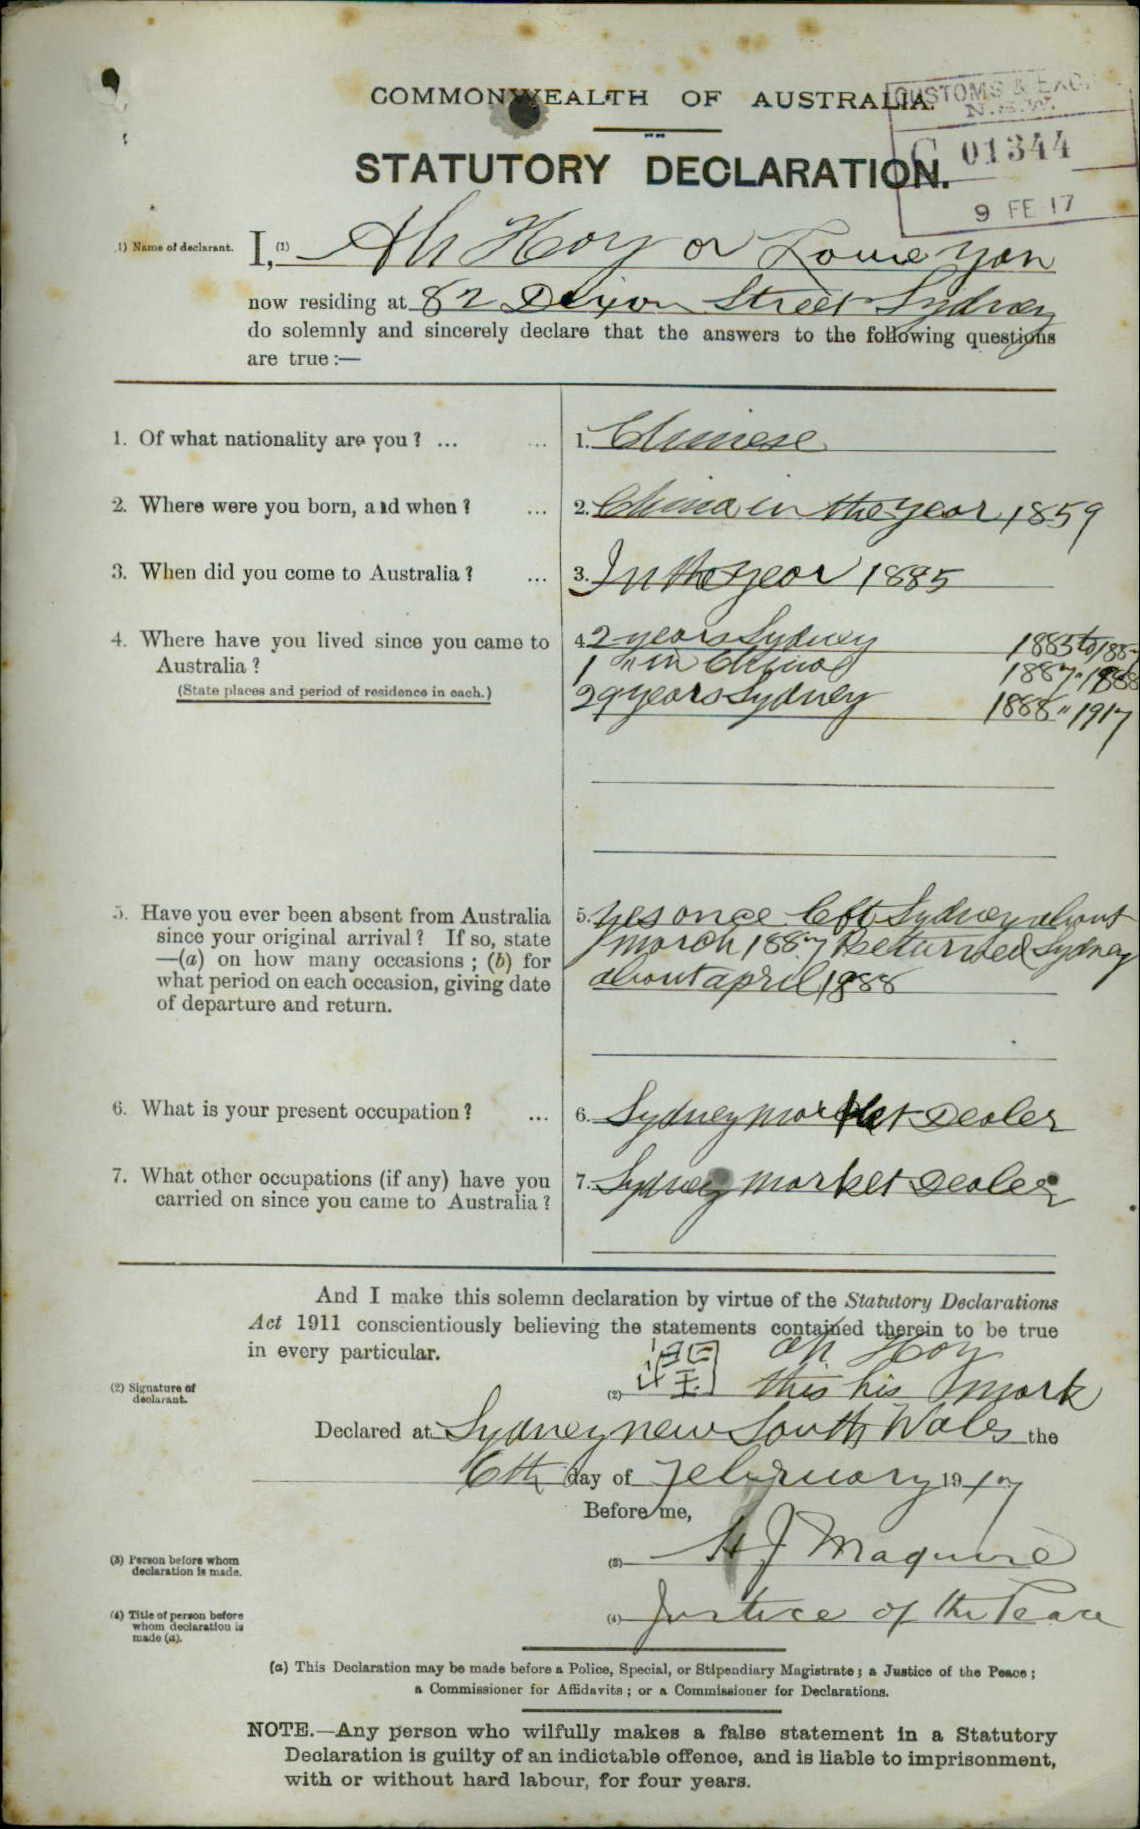 COMMONWEALTH OF AUSTRALIA.
CUSTOMS & EXC
N.S.W.
C 01344
9 FE 17
STATUTORY DECLARATION.
(1) Name of declarant.
I, (1) Ah Hoy or Louie Yon
now residing at 82 Dixon Street Sydney
do solemnly and sincerely declare that the answers to the following questions
are true :—
1. Of what nationality are you ? ... ... 1. Chinese
2. Where were you born, and when ? ... 2. China in the year 1859
3. When did you come to Australia ? ... 3. In the year 1885
4. Where have you lived since you came to Australia ?
(State places and period of residence in each.)
4. 2 years Sydney 1885 to 1887
1 " in China 1887 " 1888
29 years Sydney 1888 " 1917
5. Have you ever been absent from Australia
since your original arrival ? If so, state
—(a) on how many occasions ; (b) for
what period on each occasion, giving date
of departure and return.
5. Yes once left Sydney about
March 1887 Returned Sydney
about april 1888
6. What is your present occupation ? ... 6. Sydney market Dealer
7. What other occupations (if any) have you
carried on since you came to Australia ?
7. Sydney market Dealer
And I make this solemn declaration by virtue of the Statutory Declarations
Act 1911 conscientiously believing the statements contained therein to be true
in every particular.
Ah Hoy
(2) Signature of declarant.
(2) this his mark
Declared at Sydney new South Wales the
6th day of February 1917
Before me,
(3) Person before whom
declaration is made.
(3) H J Maguire
(4) Title of person before
whom declaration is
made (a).
(4) Justice of the Peace
(a) This Declaration may be made before a Police, Special, or Stipendiary Magistrate ; a Justice of the Peace ;
a Commissioner for Affidavits ; or a Commissioner for Declarations.
NOTE.—Any person who wilfully makes a false statement in a Statutory
Declaration is guilty of an indictable offence, and is liable to imprisonment,
with or without hard labour, for four years.